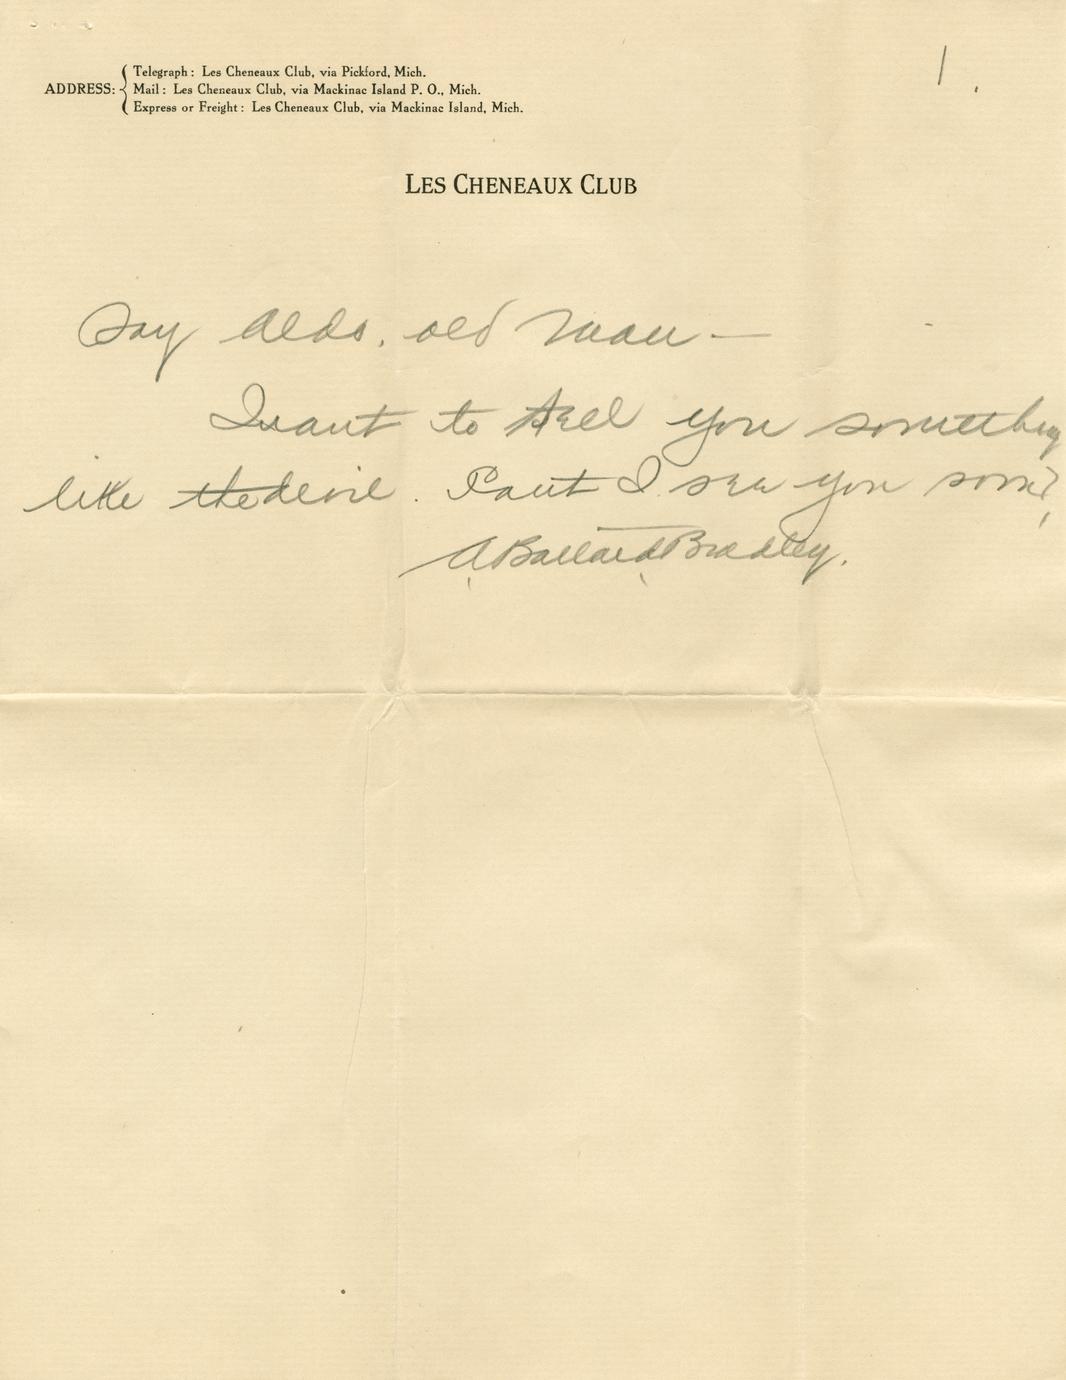 ADDRESS:
Telegraph: Les Cheneaux Club, via Pickford, Mich.
Mail: Les Cheneaux Club, via Mackinac Island P. O., Mich.
Express or Freight: Les Cheneaux Club, via Mackinac Island, Mich.
1
LES CHENEAUX CLUB
Say Aldo, old man —
I want to tell you something
like the devil. Can't I see you soon?
A. Ballard Bradley.